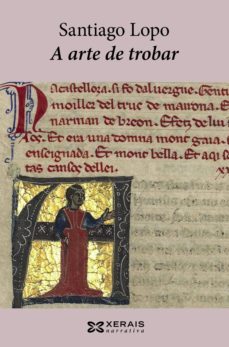 Santiago Lopo
A arte de trobar
Na castellora. si fo daluergne. Gent
moiller del truc de mairona. E
narman de breon. E fez de lui
Et era una domna mout gaia. E
enseignada. Et mout bella. Et aqi s
tas cansos de llei.
XERAIS
narrativa